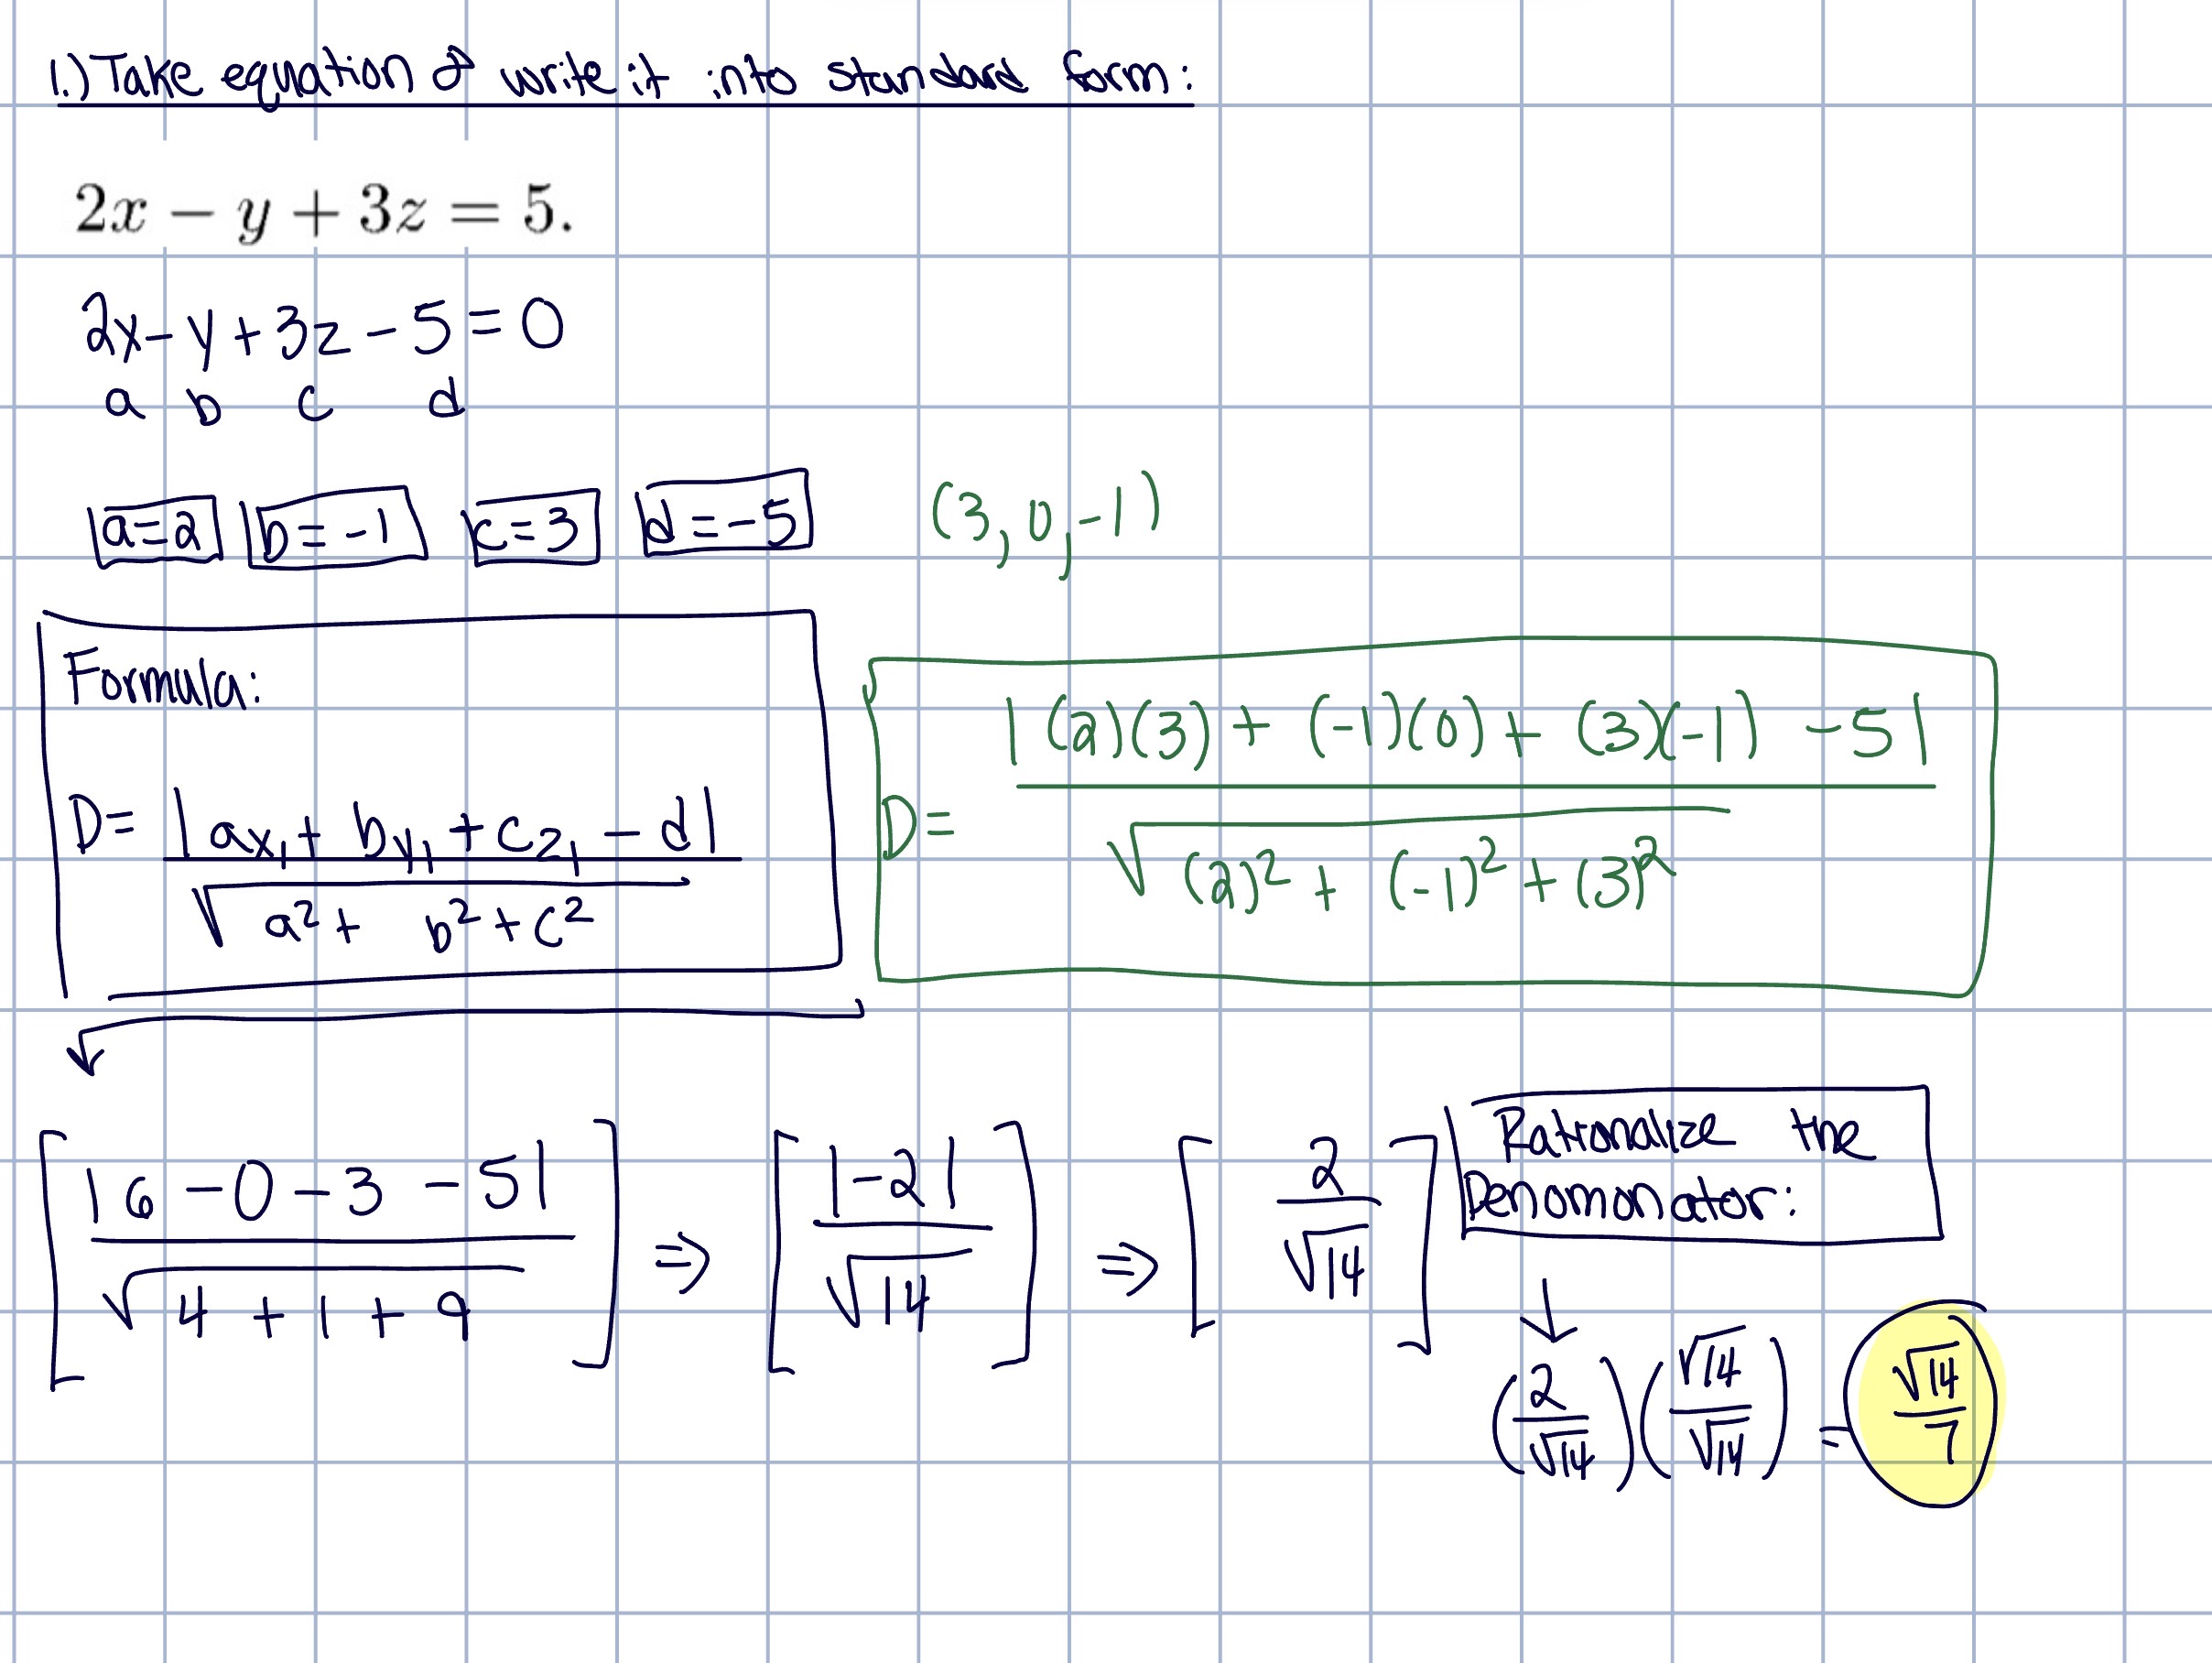 1.) Take equation & write it into standard form:
2x − y + 3z = 5.
2x − y + 3z − 5 = 0
a b c d
a=2 b=-1 c=3 d=-5 (3, 0, -1)
Formula:
D= |ax₁ + by₁ + cz₁ − d| / √(a² + b² + c²)
D= |(2)(3) + (-1)(0) + (3)(-1) -5| / √((2)² + (-1)² + (3)²)
[|6 − 0 − 3 − 5| / √(4 + 1 + 9)] ⇒ [|-2| / √14] ⇒ [2 / √14]
Rationalize the
Denomonator:
↓
(2/√14)(√14/√14) = √14/7